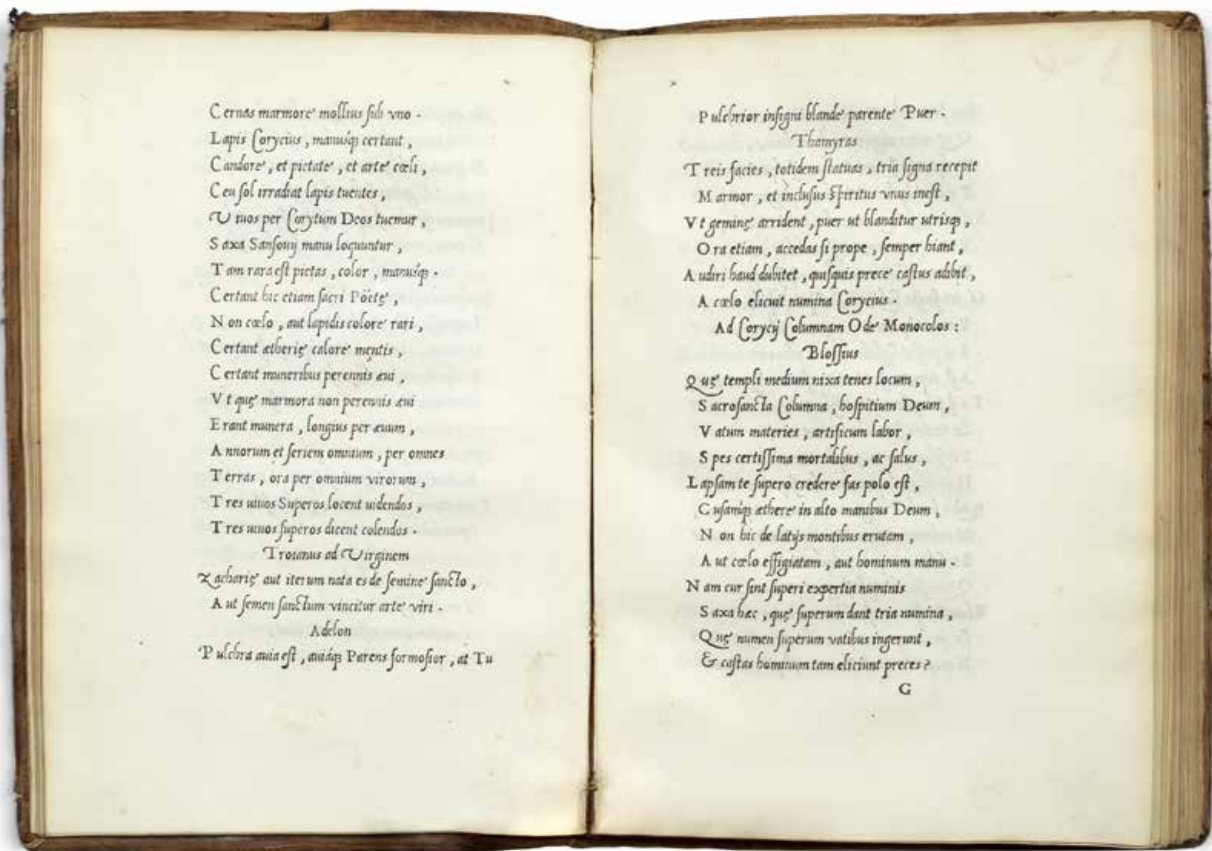 Cernas marmore mollius sub vno .
Lapis Corycius , manusq; certant ,
Candore , et pietate , et arte cœli ,
Ceu sol irradiat lapis tuentes ,
Viuos per Corytum Deos tuemur ,
Saxa Sansouij manu loquuntur ,
Tam rara est pietas , color , manusq; .
Certant hic etiam sacri Pöetę ,
Non cœlo , aut lapidis colore rari ,
Certant ætherię calore mentis ,
Certant muneribus perennis æui ,
Vt quę marmora non perennis æui
Erant munera , longius per æuum ,
Annorum et seriem omnium , per omnes
Terras , ora per omnium virorum ,
Tres uiuos Superos locent uidendos ,
Tres uiuos superos dicent colendos .
Troianus ad Virginem
Zacharię aut iterum nata es de semine sancto ,
Aut semen sanctum vincitur arte viri .
Adelon
Pulchra auia est , auiáq; Parens formosior , at Tu
Pulchrior insigni blande parente Puer .
Thamyras
Treis facies , totidem statuas , tria signa recepit
Marmor , et inclusus Spiritus vnus inest ,
Vt geminę arrident , puer ut blanditur utrisq; ,
Ora etiam , accedas si prope , semper hiant ,
Audiri haud dubitet , quisquis prece castus adibit ,
A cœlo elicuit numina Corycius .
Ad Corycij Columnam Ode Monocolos :
Blossius
Quę templi medium nixa tenes locum ,
Sacrosancta Columna , hospitium Deum ,
Vatum materies , artificum labor ,
Spes certissima mortalibus , ac salus ,
Lapsam te supero credere fas polo est ,
Cusamq; æthere in alto manibus Deum ,
Non hic de latijs montibus erutam ,
Aut cœlo effigiatam , aut hominum manu .
Nam cur sint superi expertia numinis
Saxa hæc , quę superum dant tria numina ,
Quę numen superum vatibus ingerunt ,
& castas hominum tam eliciunt preces ?
G